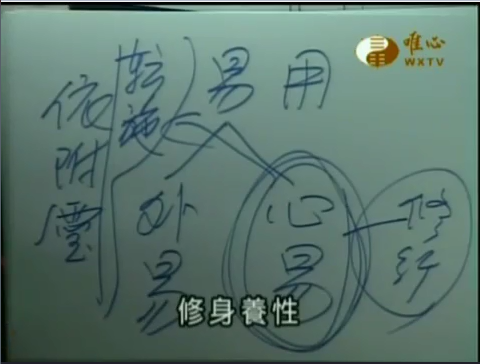 唯心
WXTV
易用
依附靈
外易
心易
修行
修身養性